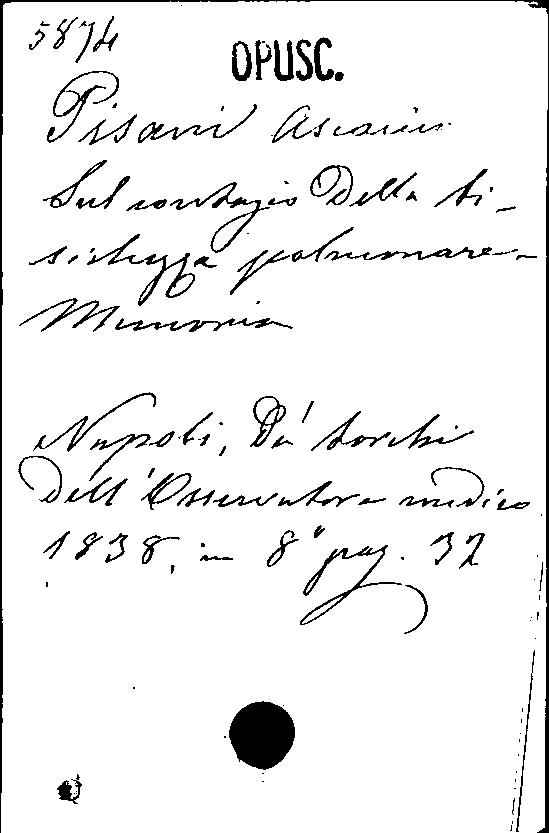 5874
OPUSC.
Pisani Ascanio
Sul contagio Della ti-
sichezza polmonare-
Memoria
Napoli, Da' torchi
Dell' Osservatore medico
1838, in 8° pag. 32